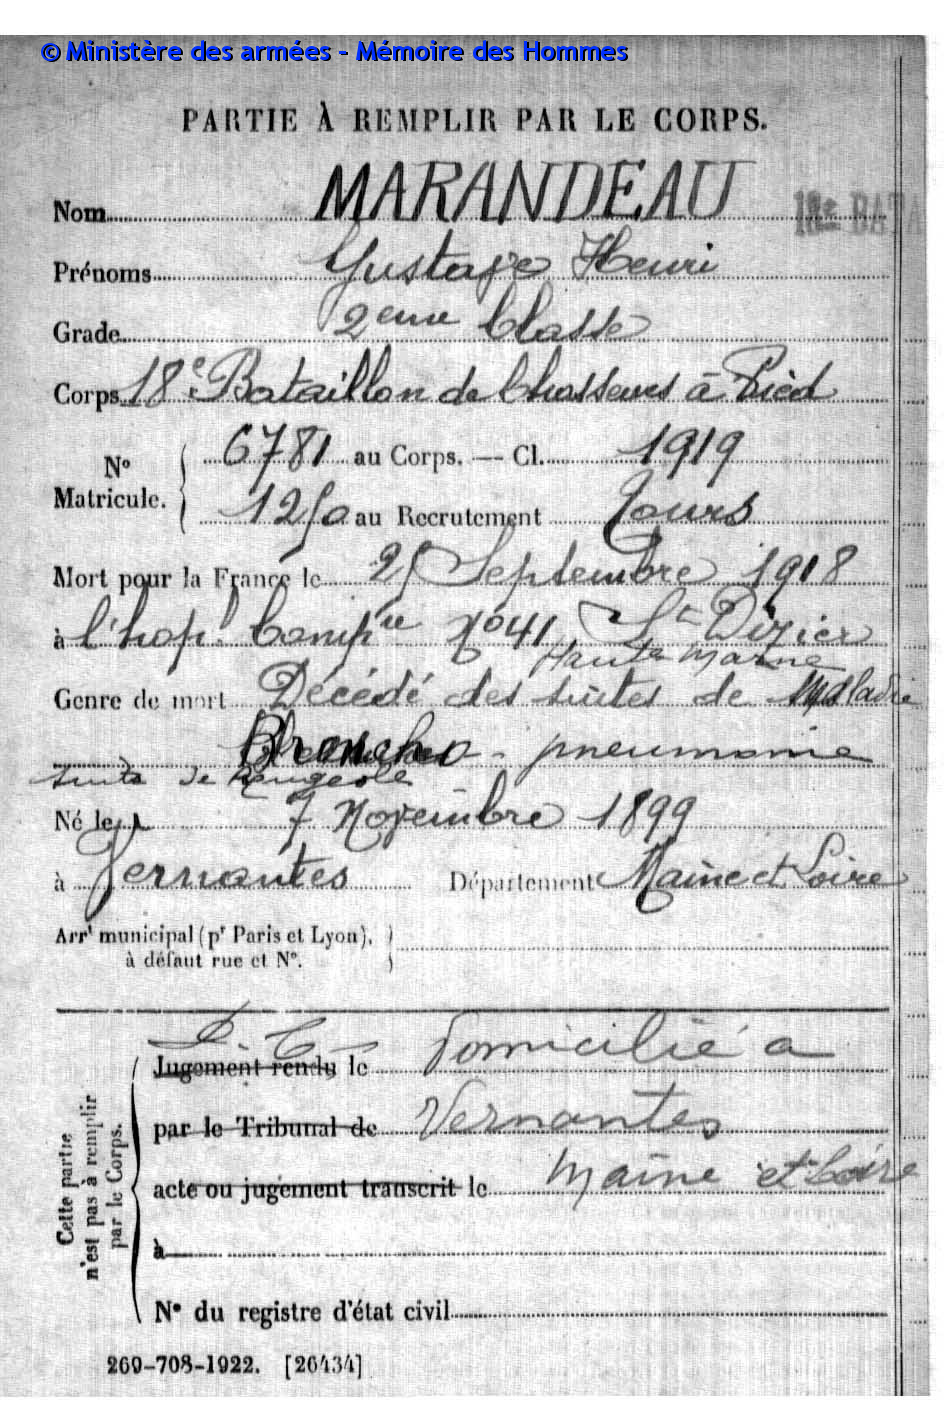 © Ministère des armées - Mémoire des Hommes
PARTIE À REMPLIR PAR LE CORPS.
Nom MARANDEAU
18e BATA
Prénoms Gustave Henri
Grade 2eme Classe
Corps 18e Bataillon de Chasseurs à Pied
N° Matricule. 6781 au Corps. — Cl. 1919
1250 au Recrutement Tours
Mort pour la France le 25 Septembre 1918
à l'hop. Comp.re N°41 St Dizier
Haute Marne
Genre de mort Décédé des suites de Maladie
Broncho - pneumonie
suite de Rougeole
Né le 7 Novembre 1899
à Vernantes Département Maine et Loire
Arrt municipal (pr Paris et Lyon),
à défaut rue et N°.
Cette partie n'est pas à remplir par le Corps.
Jugement rendu le Domicilié a
par le Tribunal de Vernantes
acte ou jugement transcrit le Maine et Loire
à
N° du registre d'état civil
269-708-1922. [26434]